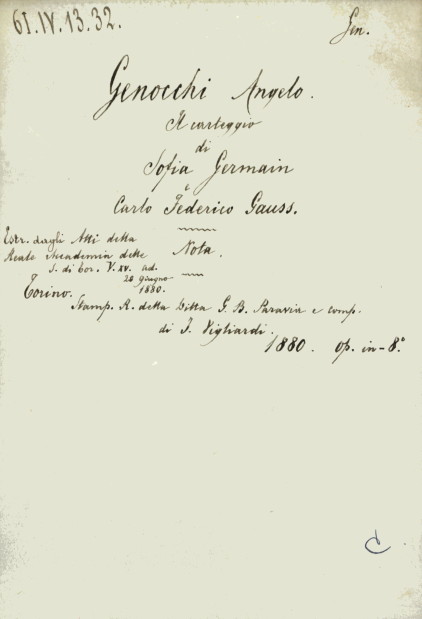 61.IV.13.32.
Gen.
Genocchi Angelo.
Il carteggio
di
Sofia Germain
e
Carlo Federico Gauss.
Estr. dagli Atti della
Reale Accademia delle
S. di Tor. V. XV. ad.
20 giugno
1880.
Nota.
Torino.
Stamp. R. della Ditta G. B. Paravia e comp.
di I. Vigliardi.
1880. op. in-8.°